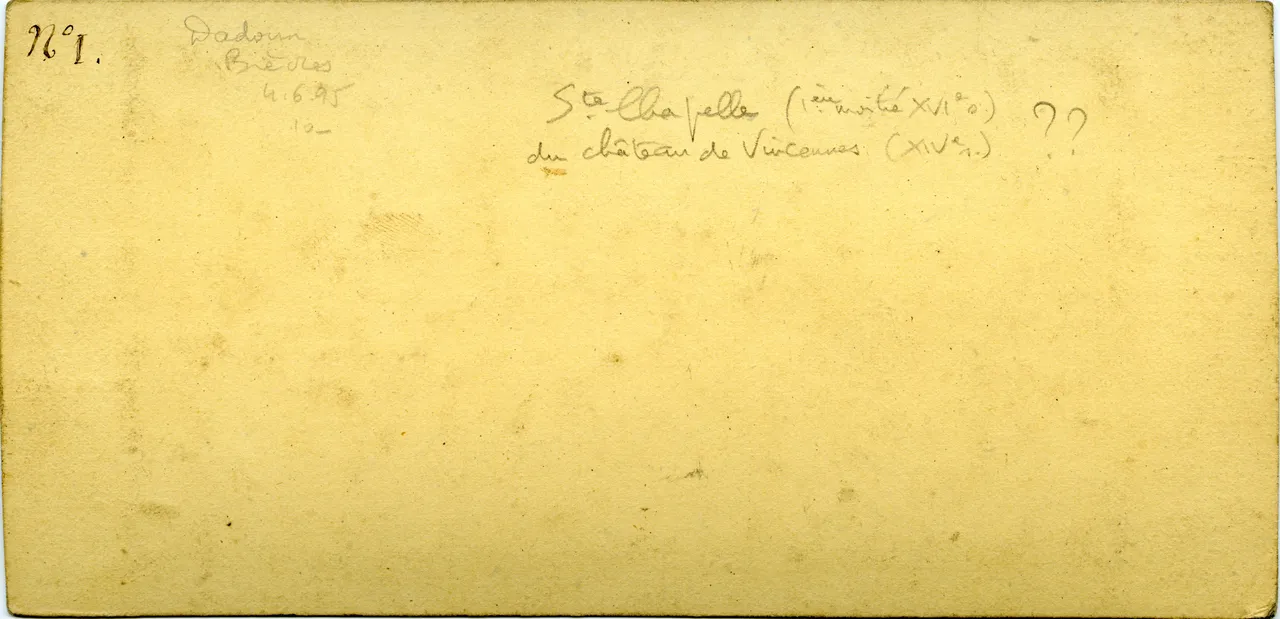 N° 1.
Dadoun
Bièvres
4.6.95
10-
Ste Chapelle (1ère moitié XVIe s.) ??
du château de Vincennes (XIVe s.)